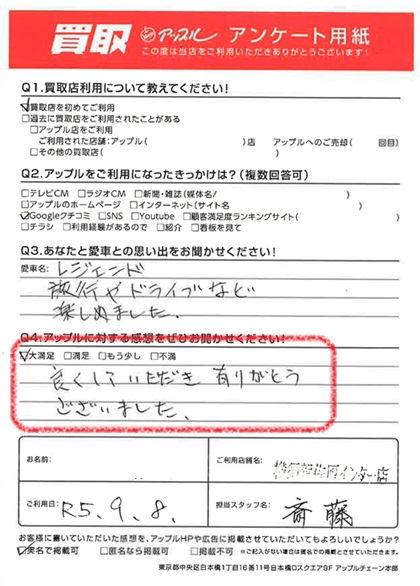 買取 アップル アンケート用紙
この度は当店をご利用いただきありがとうございます!
Q1.買取店利用について教えてください!
買取店を初めてご利用
□過去に買取店をご利用されたことがある
□アップル店をご利用
ご利用された店舗:アップル( )店 アップルへのご売却( 回目)
□その他の買取店( )
Q2.アップルをご利用になったきっかけは?(複数回答可)
□テレビCM □ラジオCM □新聞・雑誌(媒体名/ )
□アップルのホームページ □インターネット(サイト名 )
Googleクチコミ □SNS □Youtube □顧客満足度ランキングサイト( )
□チラシ □利用経験があるので □紹介 □看板を見て
Q3.あなたと愛車との思い出をお聞かせください!
愛車名: レジェンド
旅行やドライブなど
楽しめました。
Q4.アップルに対する感想をぜひお聞かせください!
大満足 □満足 □もう少し □不満
良くしていただき 有りがとう
ございました。
お名前:
ご利用店舗名:
インター店
ご利用日: R5.9.8.
担当スタッフ名: 斎藤
お客様に書いていただいた感想を、アップルHPや広告に掲載させていただいてもよろしいでしょうか?
実名で掲載可 □匿名なら掲載可 □掲載不可 ※ご記入がない場合は匿名での掲載とさせていただきます。
東京都中央区日本橋1丁目16番11号日本橋Dスクエア9F アップルチェーン本部